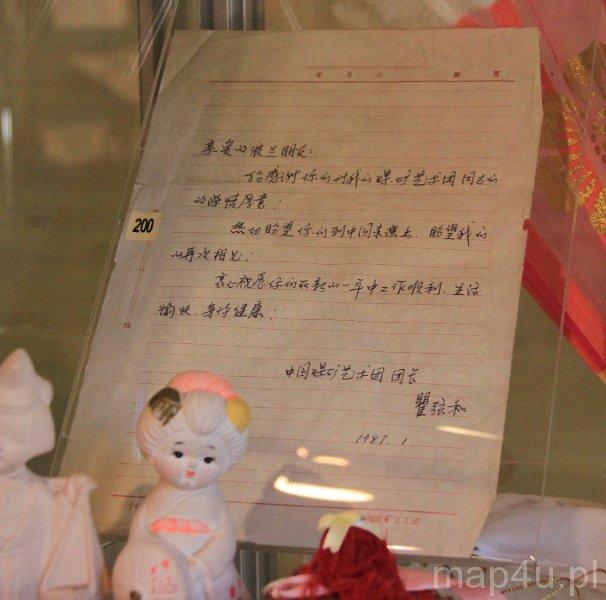 年 月 日 第 页
亲爱的波兰朋友:
感谢你们对我们煤矿艺术团同志们
的深情厚意!
热切盼望你们到中国来演出,盼望我们
的再次相见!
衷心祝愿你们在新的一年中工作顺利、生活
愉快、身体健康!
中国煤矿艺术团团长
瞿弦和
1987.1
200
国煤矿文工团
map4u.pl